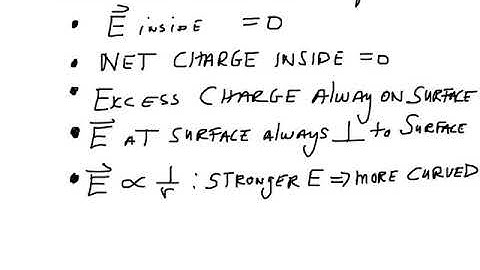 • E⃗ INSIDE = 0
• NET CHARGE INSIDE = 0
• EXCESS CHARGE AlWAY ON SURFACE
• E⃗ AT SURFACE always ⊥ to SURFACE
• E⃗ ∝ 1/r : STRONGER E ⇒ MORE CURVED